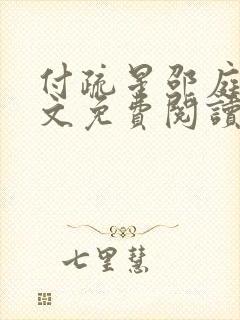 付疏星邵庭
文免費閱讀
七里慧